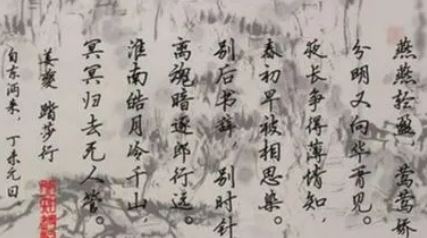 燕燕轻盈，莺莺娇
分明又向华胥见。
夜长争得薄情知，
春初早被相思染。
别后书辞，别时针
离魂暗逐郎行远。
淮南皓月冷千山，
冥冥归去无人管。
姜夔 踏莎行
自东沔来，丁未元日